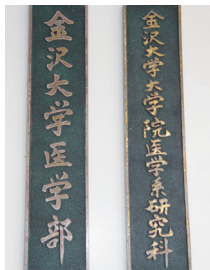 金沢大学医学部
金沢大学大学院医学系研究科